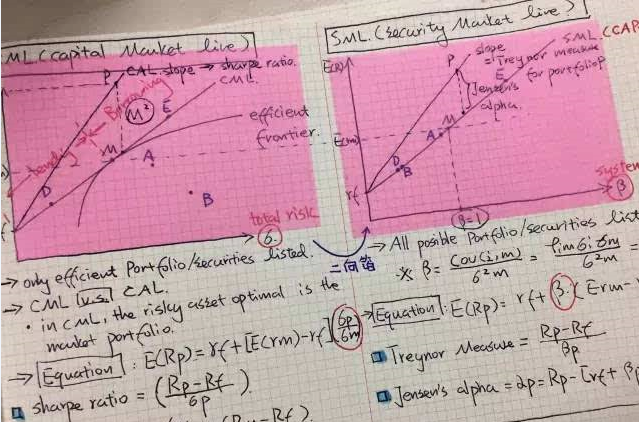 ML (capital Market live)
P
CAL. slope → sharpe ratio.
CML.
Borrowing
M²
E
efficient
frontier.
M
A
D
B
total risk
6.
→ only efficient Portfolio/securities listed.
→ CML v.s. CAL.
• in CML, the risky asset optimal is the
market portfolio.
→ Equation : E(Rp) = rf + [E(rm) - rf] 6p/6m
sharpe ratio = (Rp - Rf / 6p)
SML. (security Market live)
SML (CAP
E(ri)
P
slope
= Treynor measure
for portfolio P
E
Jensen's
alpha.
M
E(m)
A
D
B
rf
β=1
system
β
→ All posible Portfolio/securities list
※ β = Cov(i,m) / 6²m = ρim 6i 6m / 6²m =
→ Equation : E(Rp) = rf + β · (Erm -
Treynor Measure = Rp - Rf / βp
Jensen's alpha = αp = Rp - [rf + βp